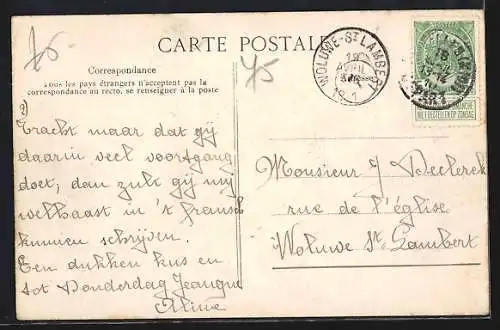 75
CARTE POSTALE
75
WOLUWE-ST LAMBERT
Correspondance
Tous les pays étrangers n'acceptent pas la
correspondance au recto, se renseigner à la poste
NIET BESTELLEN OP ZONDAG
2)
Tracht maar dat gij
daarin veel voortgang
doet, dan zult gij mij
welhaast in 't fransch
kunnen schrijven.
Een dukken kus en
tot Donderdag Jeangne
Aline
Monsieur J Declerck
rue de l'église
Woluwe St. Lambert